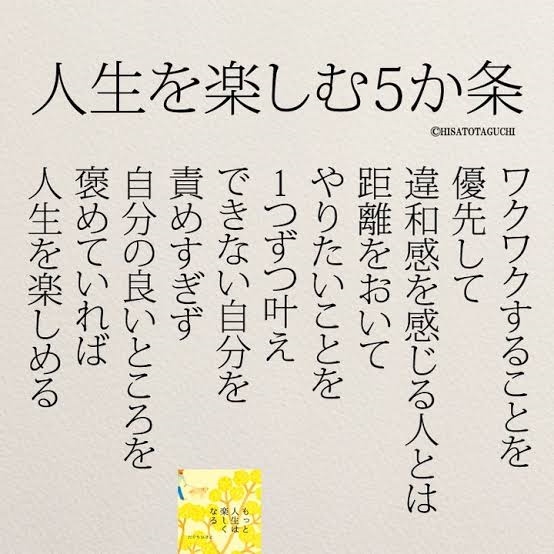 人生を楽しむ5か条
©HISATOTAGUCHI
ワクワクすることを
優先して
違和感を感じる人とは
距離をおいて
やりたいことを
1つずつ叶え
できない自分を
責めすぎず
自分の良いところを
褒めていれば
人生を楽しめる
もっと
人生は
楽しく
なる
たぐちひさと